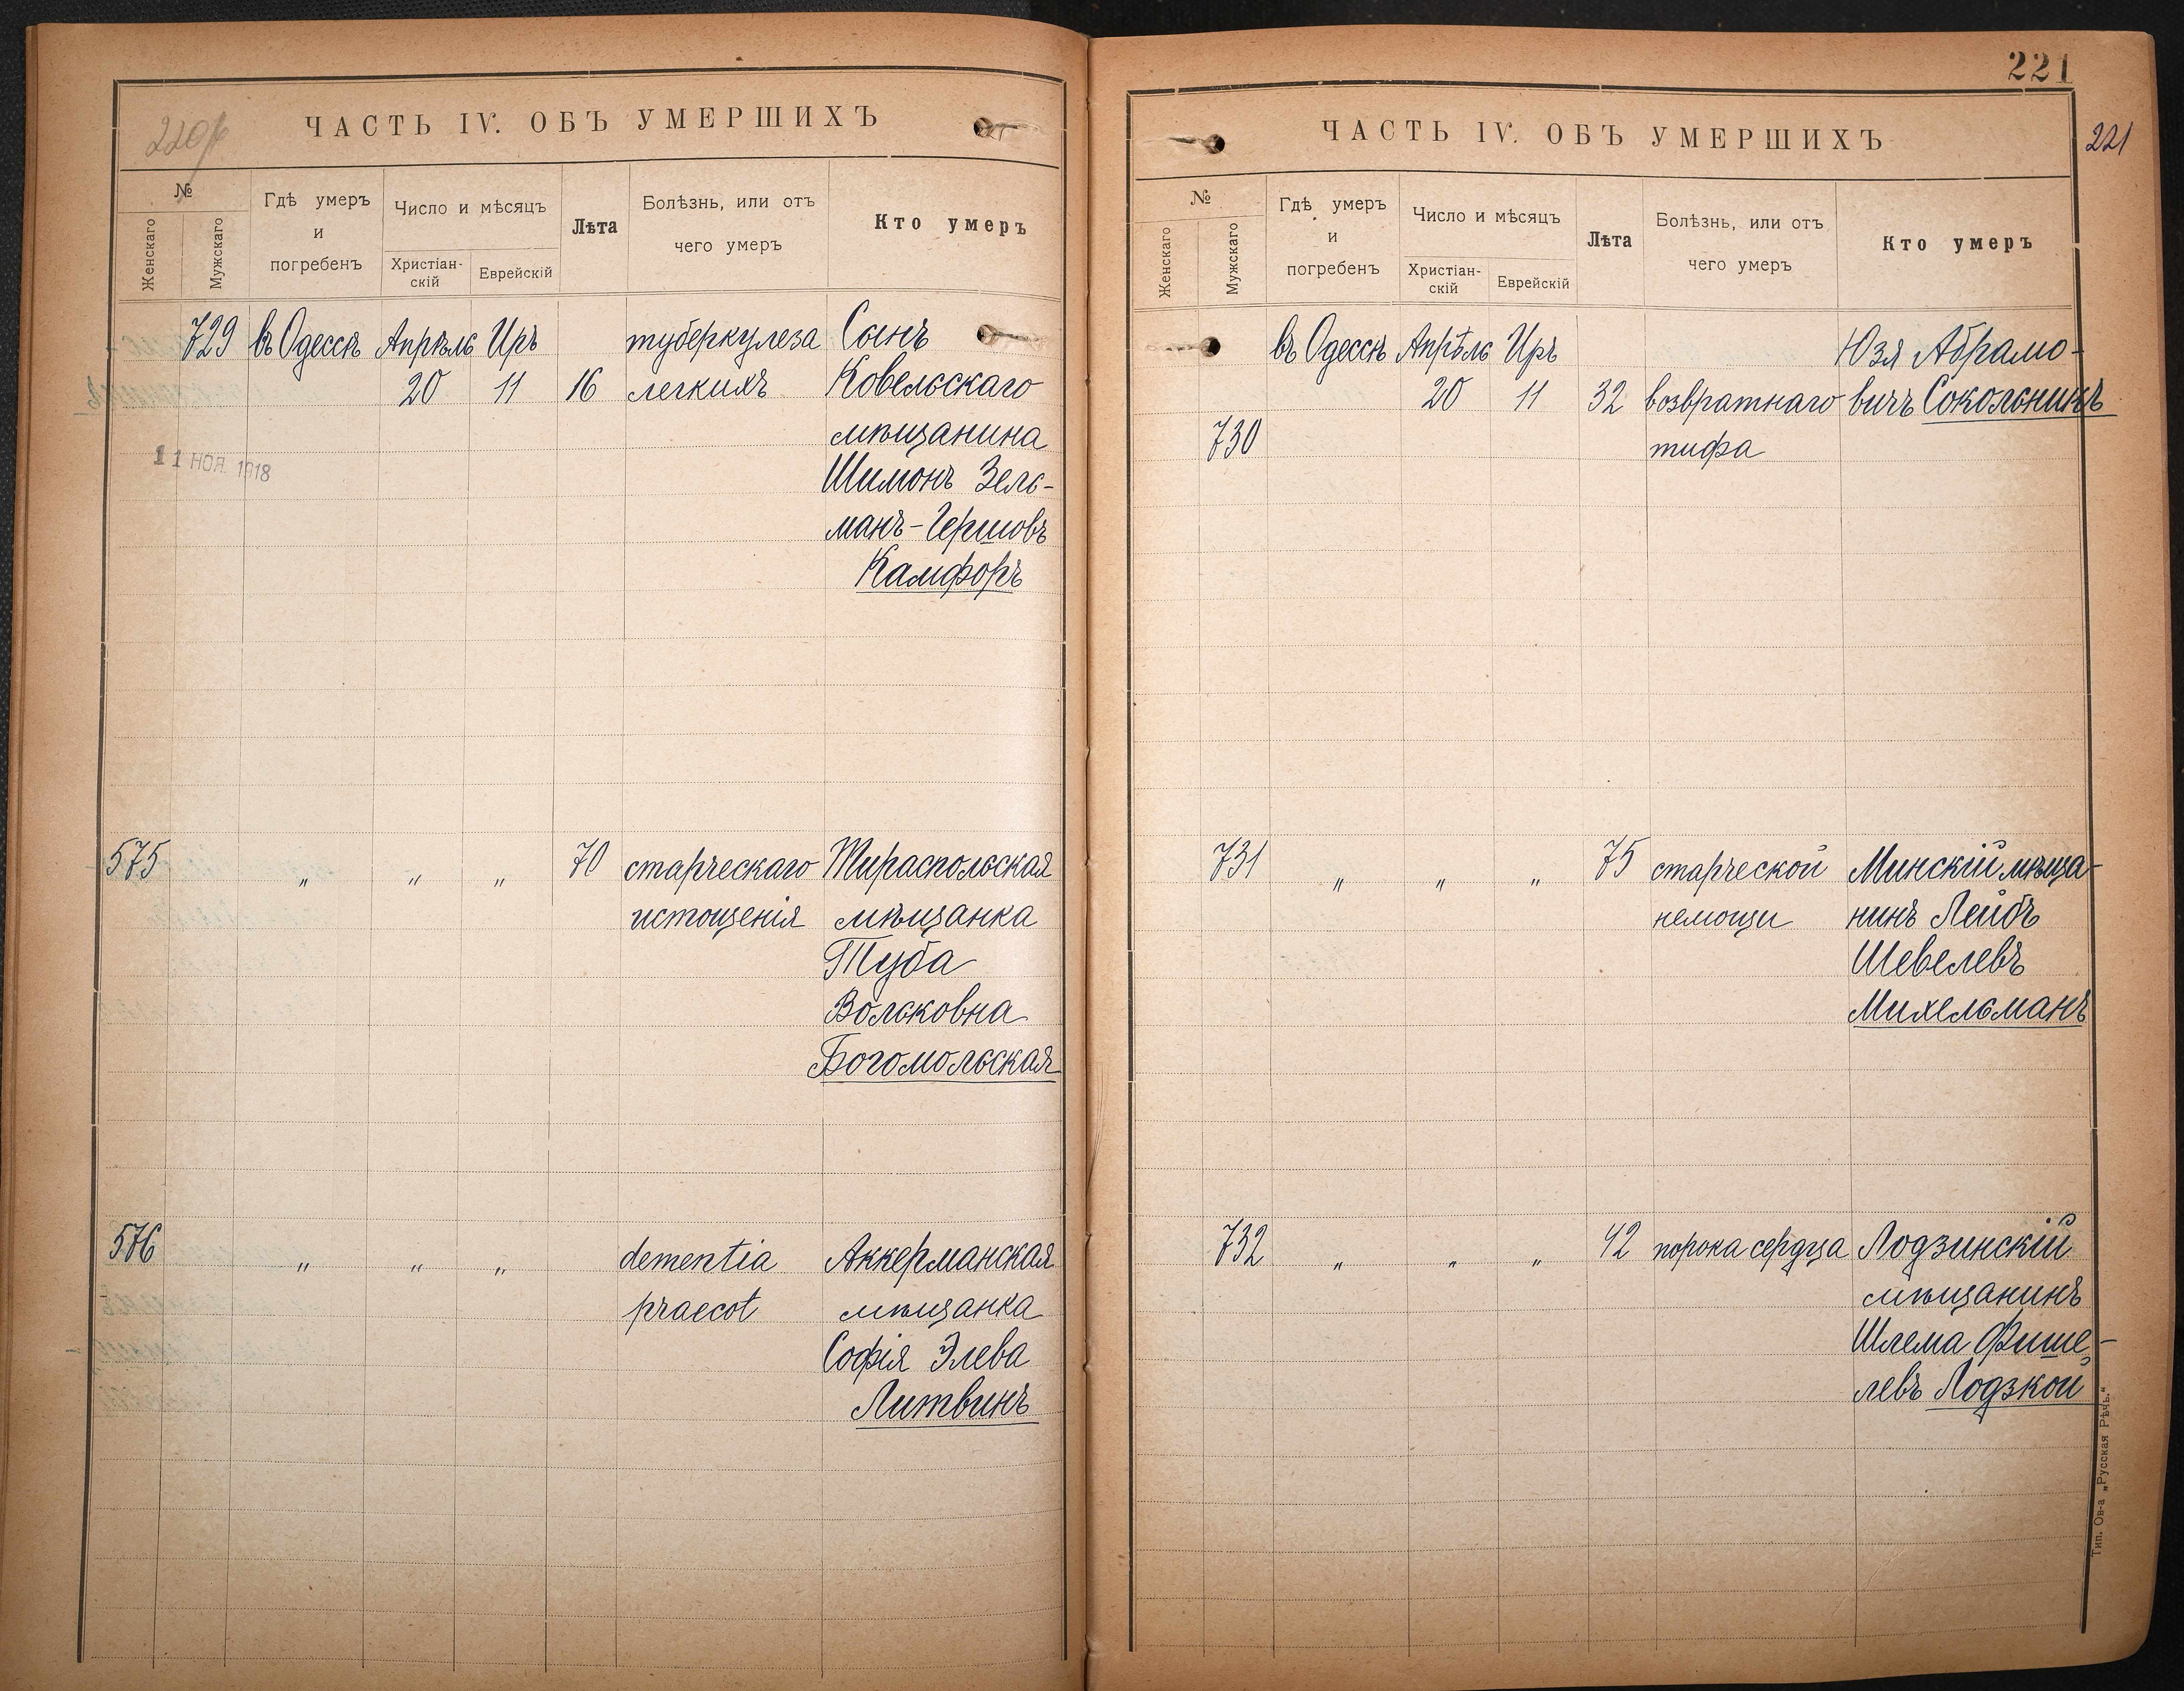 220
ЧАСТЬ IV. ОБЪ УМЕРШИХЪ
№
Женскаго
Мужскаго
Гдѣ умеръ
и
погребенъ
Число и мѣсяцъ
Христіан-
скій
Еврейскій
Лѣта
Болѣзнь, или отъ
чего умеръ
Кто умеръ
729 въ Одессѣ Апрѣль Иръ туберкулеза Сынъ
20 11 16 легкихъ Ковельскаго
мѣщанина
11 НОЯ. 1918
Шимонъ Зель-
манъ-Гершовъ
Камфоръ
575 " " " 70 старческаго Тираспольская
истощенія мѣщанка
Туба
Вольковна
Богомольская
576 " " " dementia Аккерманская
praecot мѣщанка
Софія Элева
Литвинъ
221
221
ЧАСТЬ IV. ОБЪ УМЕРШИХЪ
№
Женскаго
Мужскаго
Гдѣ умеръ
и
погребенъ
Число и мѣсяцъ
Христіан-
скій
Еврейскій
Лѣта
Болѣзнь, или отъ
чего умеръ
Кто умеръ
въ Одессѣ Апрѣль Иръ Юзя Абрамо-
20 11 32 возвратнаго вичъ Сокольникъ
730 тифа
731 " " " 75 старческой Минскій мѣща-
немощи нинъ Лейбъ
Шевелевъ
Михельманъ
732 " " " 42 порока сердца Лодзинскій
мѣщанинъ
Шлема Фише-
левъ Лодзкой
Тип. Ов-а „Русская Рѣчь."